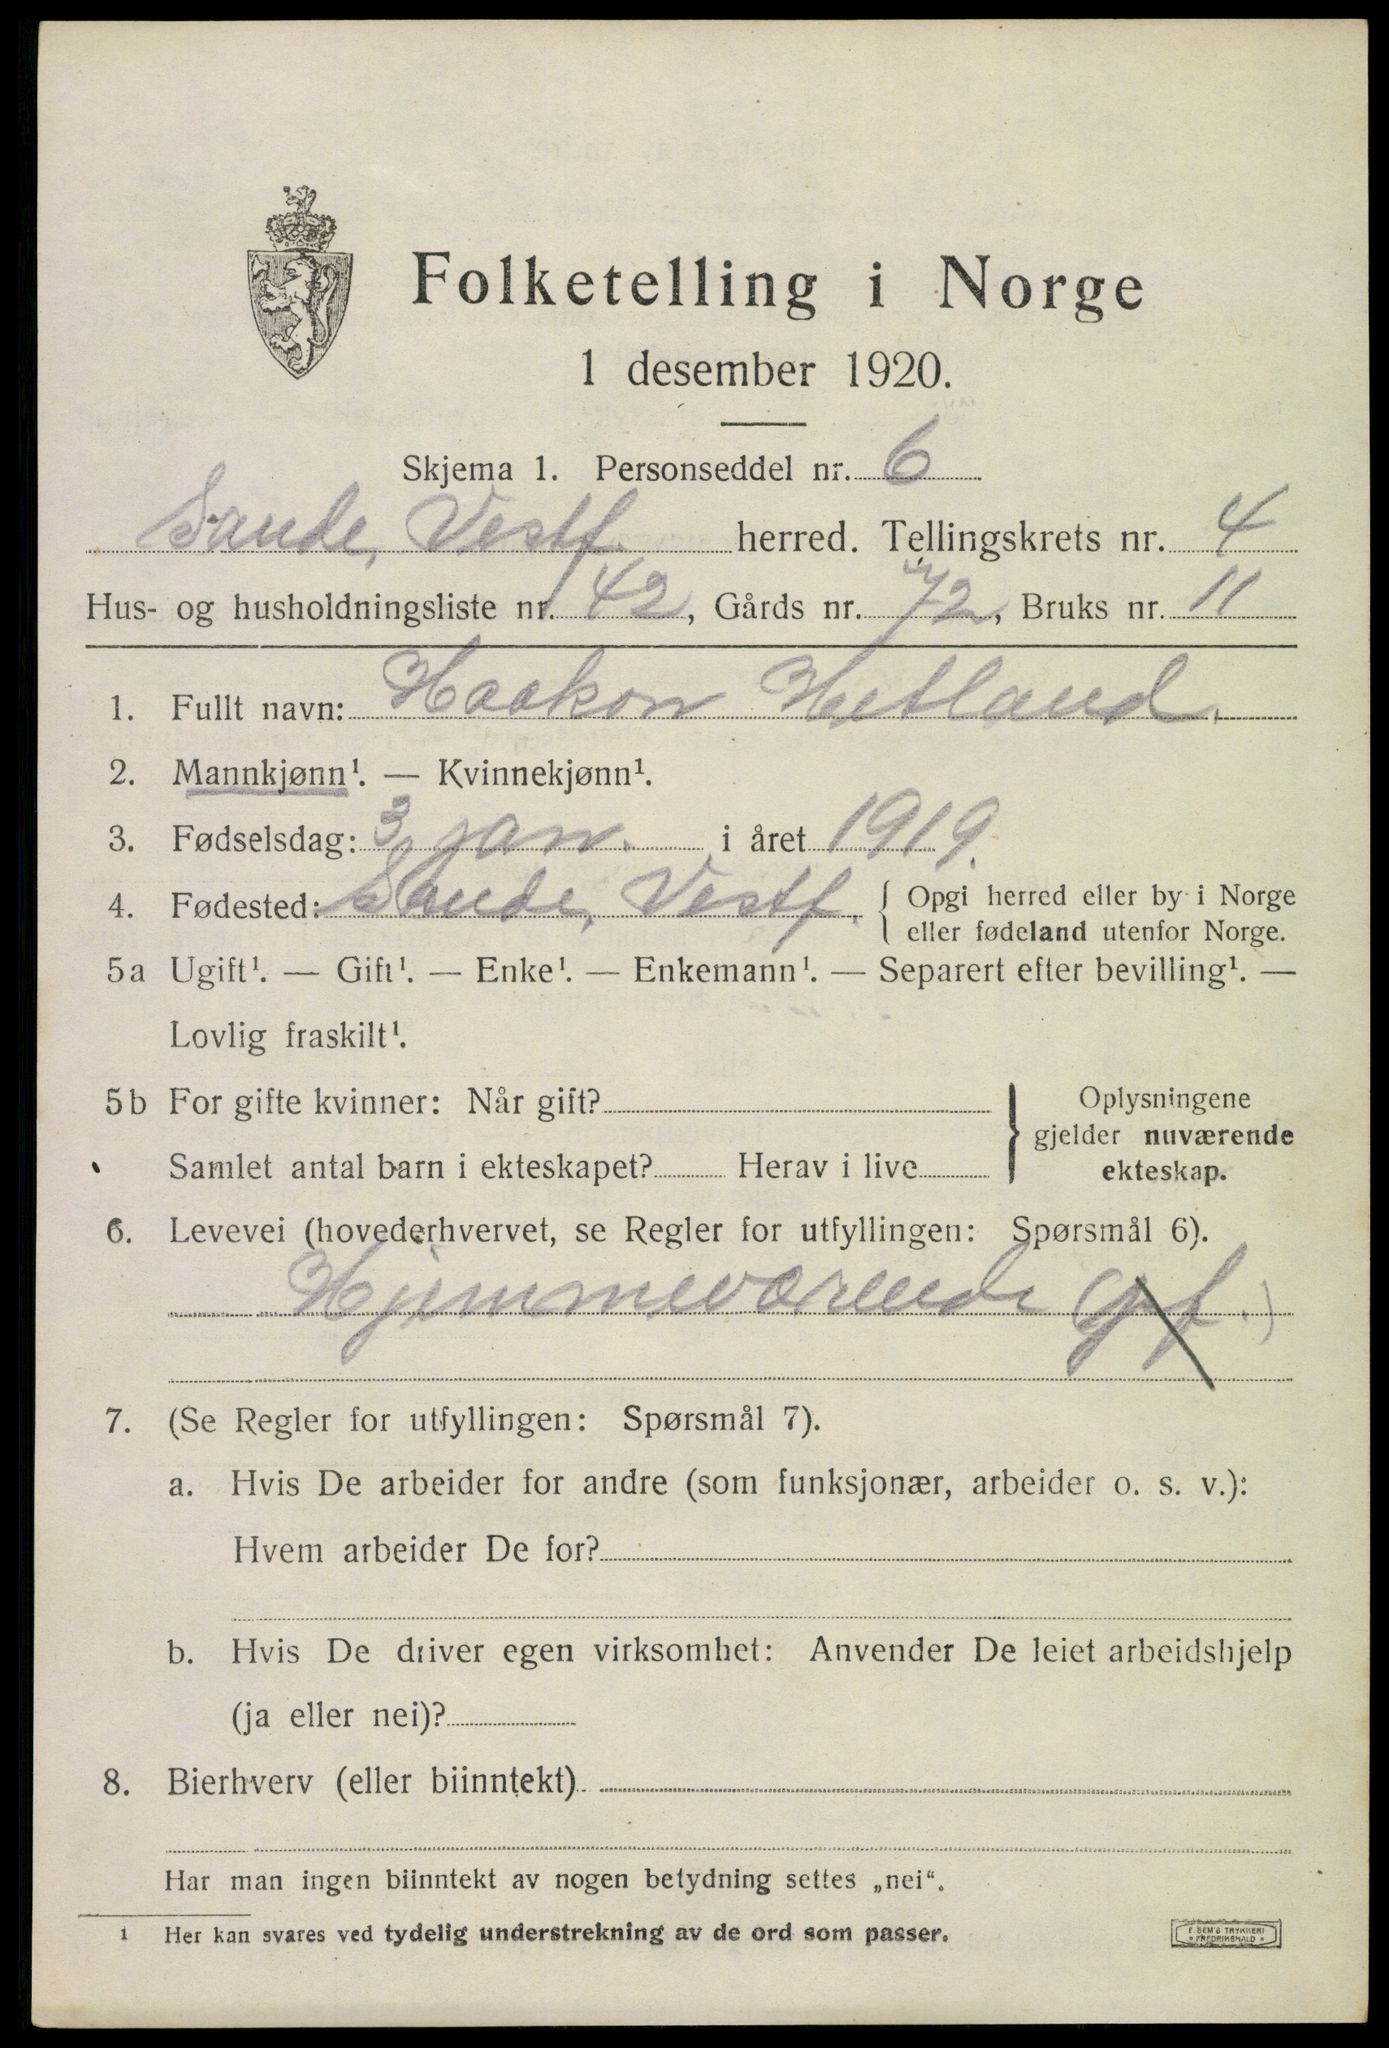 Folketelling i Norge
1 desember 1920.
Skjema 1. Personseddel nr. 6
Sande, Vestf. herred. Tellingskrets nr. 4
Hus- og husholdningsliste nr. 42, Gårds nr. 72, Bruks nr. 11
1. Fullt navn: Haakon Hetland.
2. Mannkjønn¹. — Kvinnekjønn¹.
3. Fødselsdag: 3 jan. i året 1919.
4. Fødested: Sande, Vestf. { Opgi herred eller by i Norge
eller fødeland utenfor Norge.
5a Ugift¹. — Gift¹. — Enke¹. — Enkemann¹. — Separert efter bevilling¹. —
Lovlig fraskilt¹.
5b For gifte kvinner: Når gift?
Samlet antal barn i ekteskapet? Herav i live
} Oplysningene
gjelder nuværende
ekteskap.
6. Levevei (hovederhvervet, se Regler for utfyllingen: Spørsmål 6).
Hjemmeværende (gf.)
7. (Se Regler for utfyllingen: Spørsmål 7).
a. Hvis De arbeider for andre (som funksjonær, arbeider o. s. v.):
Hvem arbeider De for?
b. Hvis De driver egen virksomhet: Anvender De leiet arbeidshjelp
(ja eller nei)?
8. Bierhverv (eller biinntekt)
Har man ingen biinntekt av nogen betydning settes „nei“.
¹ Her kan svares ved tydelig understrekning av de ord som passer.
E. SEM'S TRYKKERI
* FREDRIKSHALD *